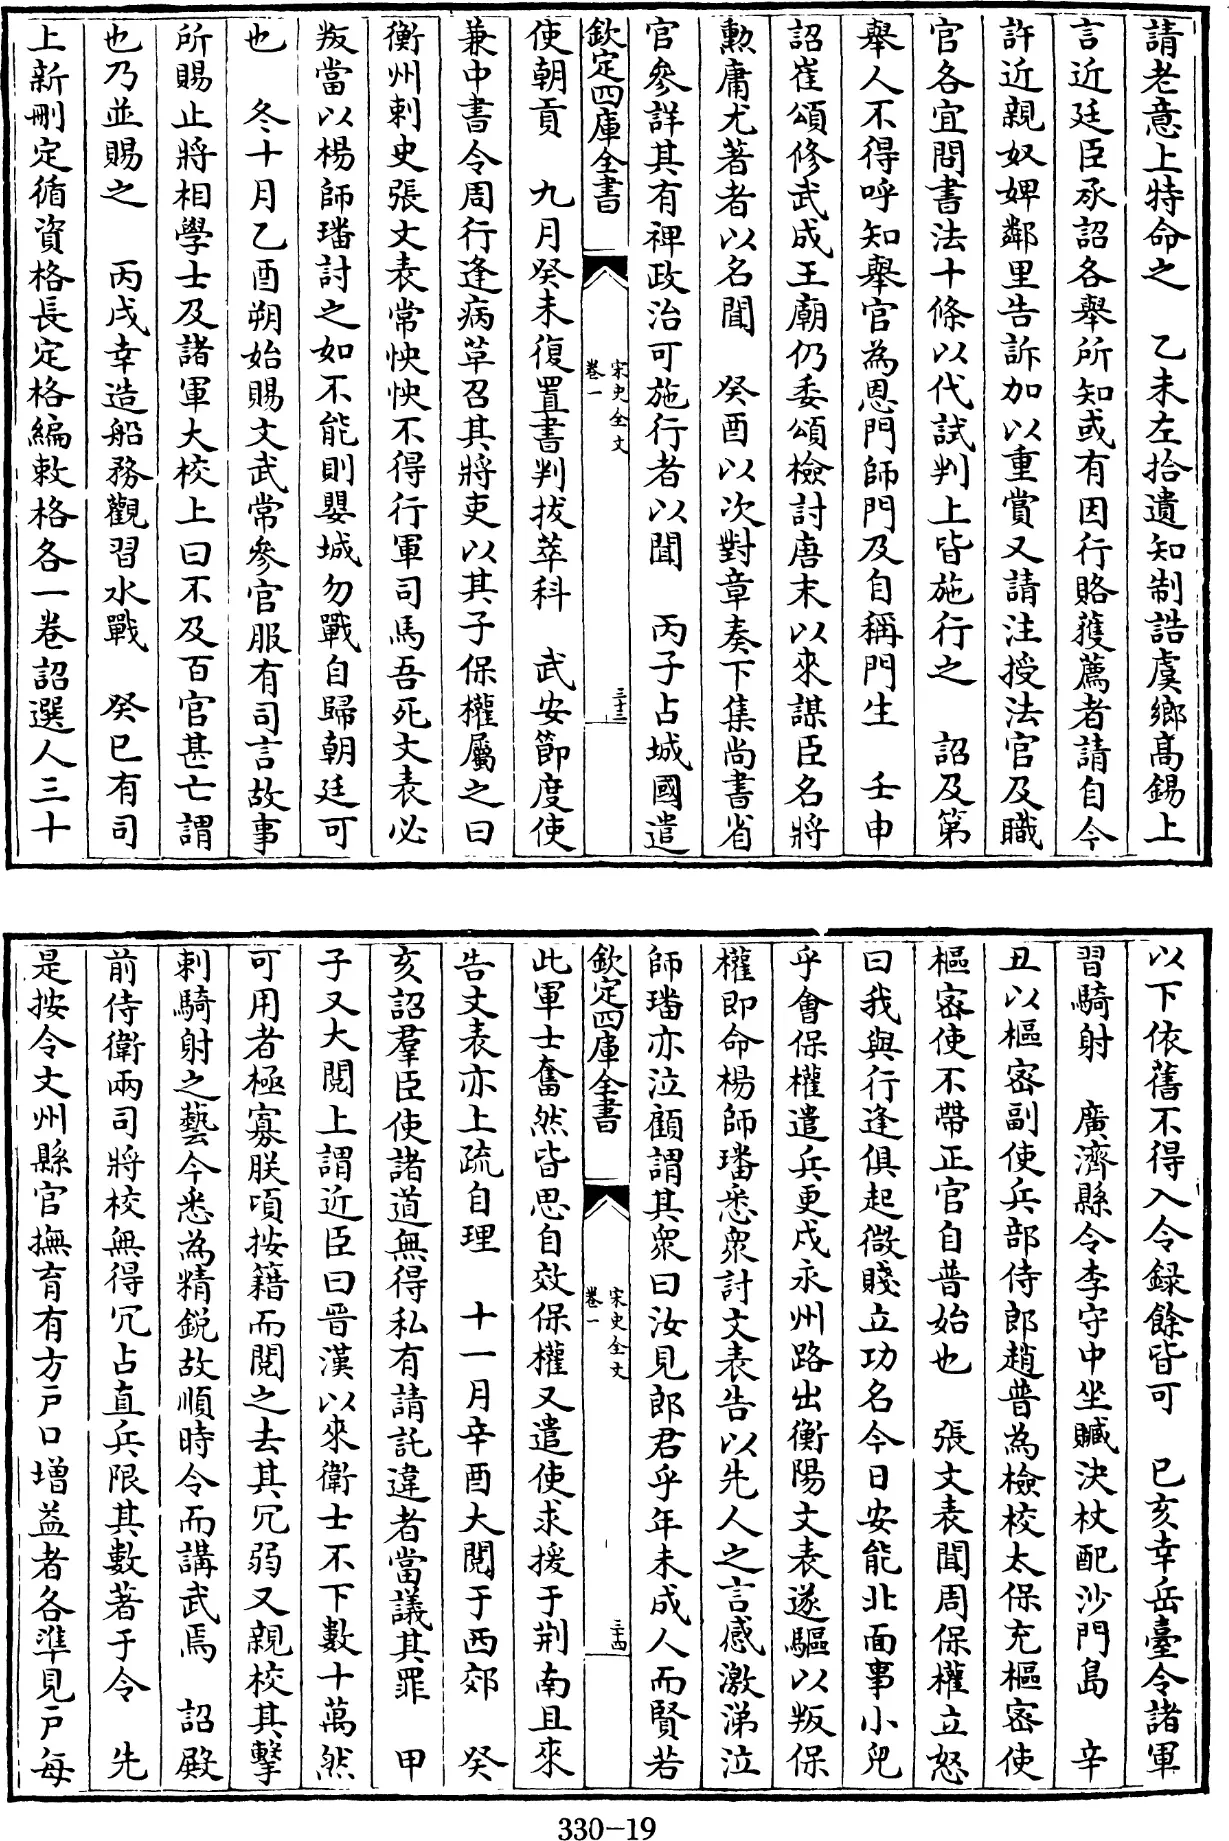 請老意上特命之　乙未左拾遺知制誥虞鄉高錫上
言近廷臣承詔各舉所知或有因行賂獲薦者請自今
許近親奴婢鄰里告訴加以重賞又請注授法官及職
官各宜問書法十條以代試判上皆施行之　詔及第
舉人不得呼知舉官為恩門師門及自稱門生　壬申
詔崔頌修武成王廟仍委頌檢討唐末以來謀臣名將
勲庸尤著者以名聞　癸酉以次對章奏下集尚書省
官參詳其有裨政治可施行者以聞　丙子占城國遣
欽定四庫全書　宋史全文　卷一　三十三
使朝貢　九月癸未復置書判拔萃科　武安節度使
兼中書令周行逢病革召其將吏以其子保權屬之曰
衡州刺史張文表常怏怏不得行軍司馬吾死文表必
叛當以楊師璠討之如不能則嬰城勿戰自歸朝廷可
也　冬十月乙酉朔始賜文武常參官服有司言故事
所賜止將相學士及諸軍大校上曰不及百官甚亡謂
也乃並賜之　丙戌幸造船務觀習水戰　癸巳有司
上新刪定循資格長定格編敕格各一卷詔選人三十
以下依舊不得入令録餘皆可　已亥幸岳臺令諸軍
習騎射　廣濟縣令李守中坐贓決杖配沙門島　辛
丑以樞密副使兵部侍郎趙普為檢校太保充樞密使
樞密使不帶正官自普始也　張文表聞周保權立怒
曰我與行逢俱起微賤立功名今日安能北面事小兒
乎會保權遣兵更戍永州路出衡陽文表遂驅以叛保
權即命楊師璠悉衆討文表告以先人之言感激涕泣
師璠亦泣顧謂其衆曰汝見郎君乎年未成人而賢若
欽定四庫全書　宋史全文　卷一　三十四
此軍士奮然皆思自效保權又遣使求援于荆南且來
告文表亦上疏自理　十一月辛酉大閱于西郊　癸
亥詔羣臣使諸道無得私有請託違者當議其罪　甲
子又大閱上謂近臣曰晉漢以來衛士不下數十萬然
可用者極寡朕頃按籍而閱之去其冗弱又親校其擊
刺騎射之藝今悉為精銳故順時令而講武焉　詔殿
前侍衛兩司將校無得冗占直兵限其數著于令　先
是按令文州縣官撫育有方戶口增益者各準見戶每
330-19